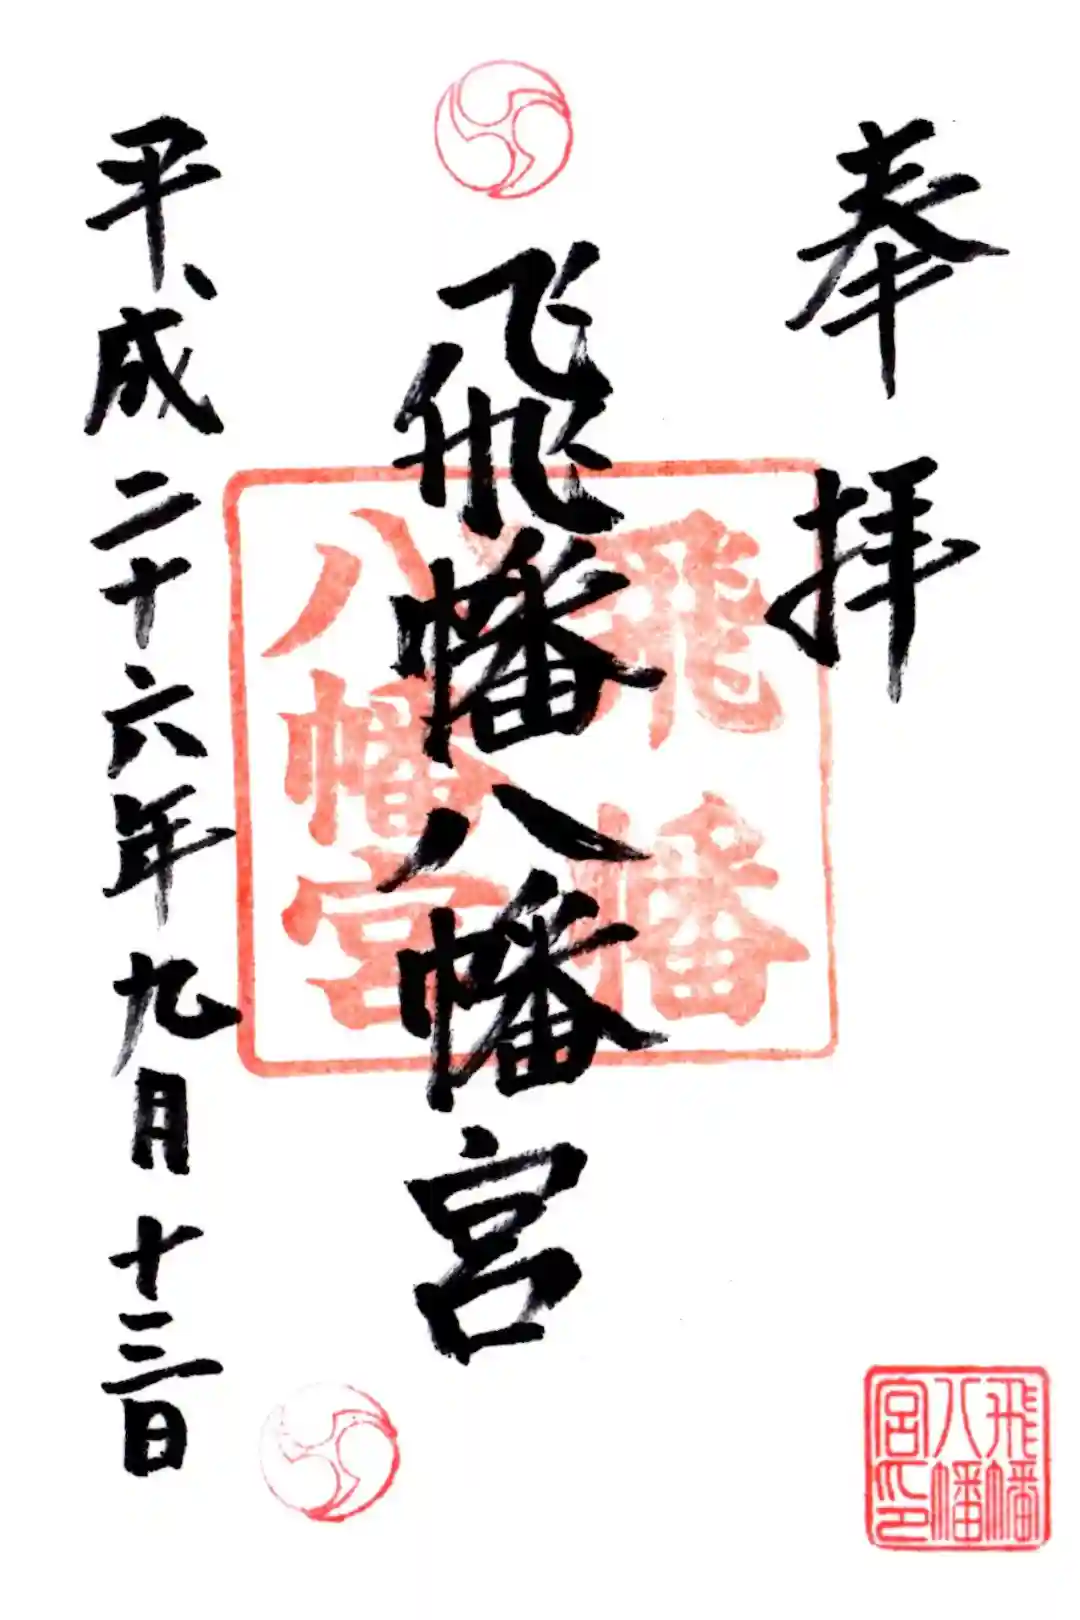 奉拝
飛幡八幡宮
平成二十六年九月十三日
飛幡
八幡宮
飛幡
八幡
宮之印